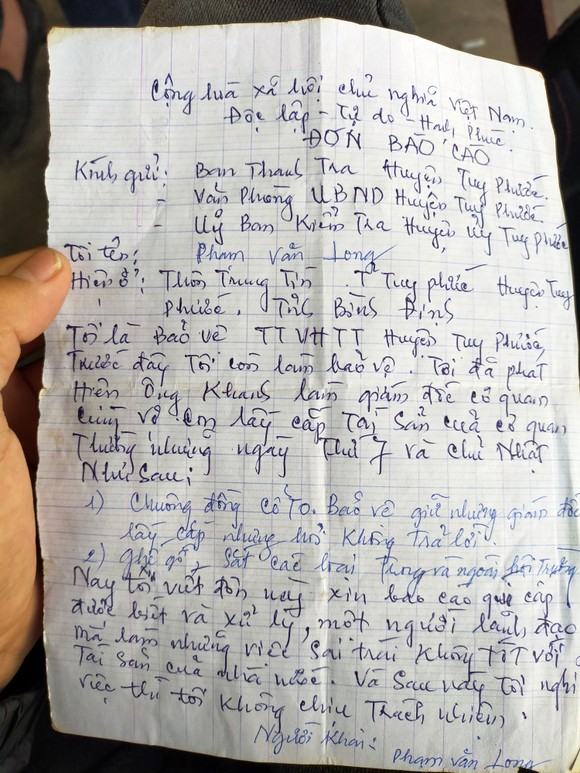 Cộng hoà xã hội chủ nghĩa Việt Nam.
Độc lập - Tự do - Hạnh Phúc.
ĐƠN BÁO CÁO
Kính gửi: Ban Thanh Tra Huyện Tuy Phước.
- Văn Phòng UBND Huyện Tuy Phước
- Uỷ Ban Kiểm Tra Huyện Uỷ Tuy Phước
Tôi tên: Phạm Văn Long
Hiện ở: Thôn Trung Tín. TT Tuy phước Huyện Tuy
Phước. Tỉnh Bình Định
Tôi là Bảo vệ TTVHTT Huyện Tuy Phước,
Trước đây Tôi còn làm bảo vệ. Tôi đã phát
Hiện Ông Khanh làm giám đốc cơ quan
cùng vợ con lấy cắp Tài sản của cơ quan
Thường những ngày Thứ 7 và chủ Nhật
Như sau:
1) Chuông đồng cổ To. Bảo vệ giữ nhưng giám đốc
lấy cắp nhưng hỏi không trả lời.
2) ghế gỗ, sắt các loại Trong và ngoài hội Trường
Nay tôi viết đơn này xin báo cáo quí cấp
được biết và xử lý, một người lãnh đạo
mà làm những việc sai trái không tốt với
Tài sản của nhà nước. Và sau này Tôi nghỉ
việc thì tôi không chịu Trách nhiệm.
Người khai:
Phạm Văn Long